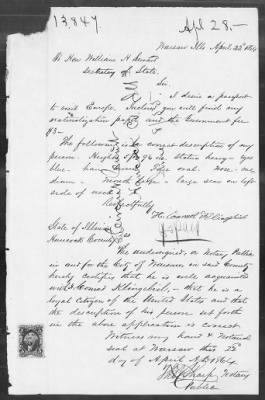 13,847
Apl 28.—
Warsaw Ills April 22d 1864
To Hon William H Seward
Secretary of State.
Sir,
I desire a passport
to visit Europe. Inclosed you will find my
naturalization paper and the Government fee
$3—
The following is a correct description of my
person. Height 5 feet in. stature heavy - eyes
blue - hair Face oval. Nose
- large scar on left
side of neck
Respectfully
Conrad Klingebiel
State of Illinois
Hancock County ss
The undersigned, a Notary Public
in and for the City of Warsaw in said County
hereby certifies that he is well acquainted
with Conrad Klingebiel, - that he is a
loyal citizen of the United States and that
the description of his person set forth
in the above application is correct
Witness my hand & Notarial
seal at Warsaw this 22d
day of April A.D. 1864
Sharp, Notary
Public